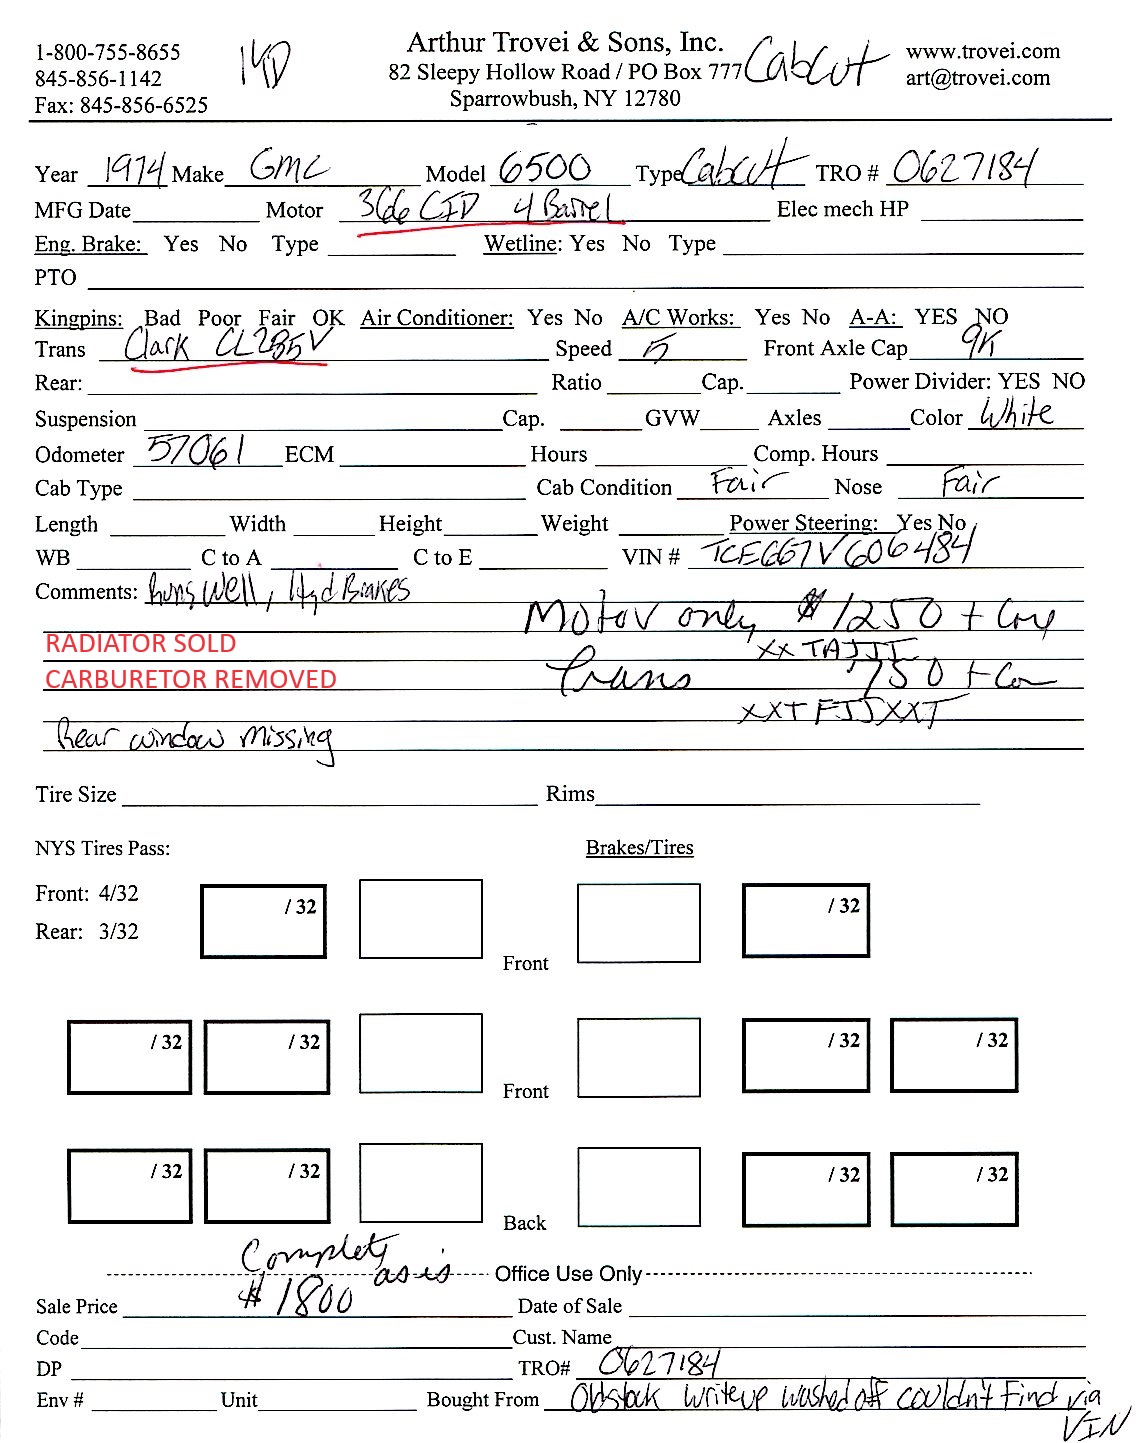 1-800-755-8655
845-856-1142
Fax: 845-856-6525
Arthur Trovei & Sons, Inc.
82 Sleepy Hollow Road / PO Box 777
Sparrowbush, NY 12780
Cabcut
www.trovei.com
art@trovei.com
Year 1974 Make GMC Model 6500 Type Cabcut TRO # 0627184
MFG Date Motor 366 CID 4 Barrel Elec mech HP
Eng. Brake: Yes No Type Wetline: Yes No Type
PTO
Kingpins: Bad Poor Fair OK Air Conditioner: Yes No A/C Works: Yes No A-A: YES NO
Trans Clark CL285V Speed 5 Front Axle Cap 9K
Rear: Ratio Cap. Power Divider: YES NO
Suspension Cap. GVW Axles Color White
Odometer 57061 ECM Hours Comp. Hours
Cab Type Cab Condition Fair Nose Fair
Length Width Height Weight Power Steering: Yes No
WB C to A C to E VIN # TCE667V606484
Comments: Runs Well, Hyd Brakes
Motor only $1250 + Core
RADIATOR SOLD
XXTAJJI
CARBURETOR REMOVED
Trans 750 + Core
XXTFJJXXT
Rear window missing
Tire Size Rims
NYS Tires Pass: Brakes/Tires
Front: 4/32
Rear: 3/32
/ 32 / 32
Front
/ 32 / 32 / 32 / 32
Front
/ 32 / 32 / 32 / 32
Back
Complete
as is Office Use Only
Sale Price $1800 Date of Sale
Code Cust. Name
DP TRO# 0627184
Env # Unit Bought From Oldstock writeup washed off couldn't find via
VIN